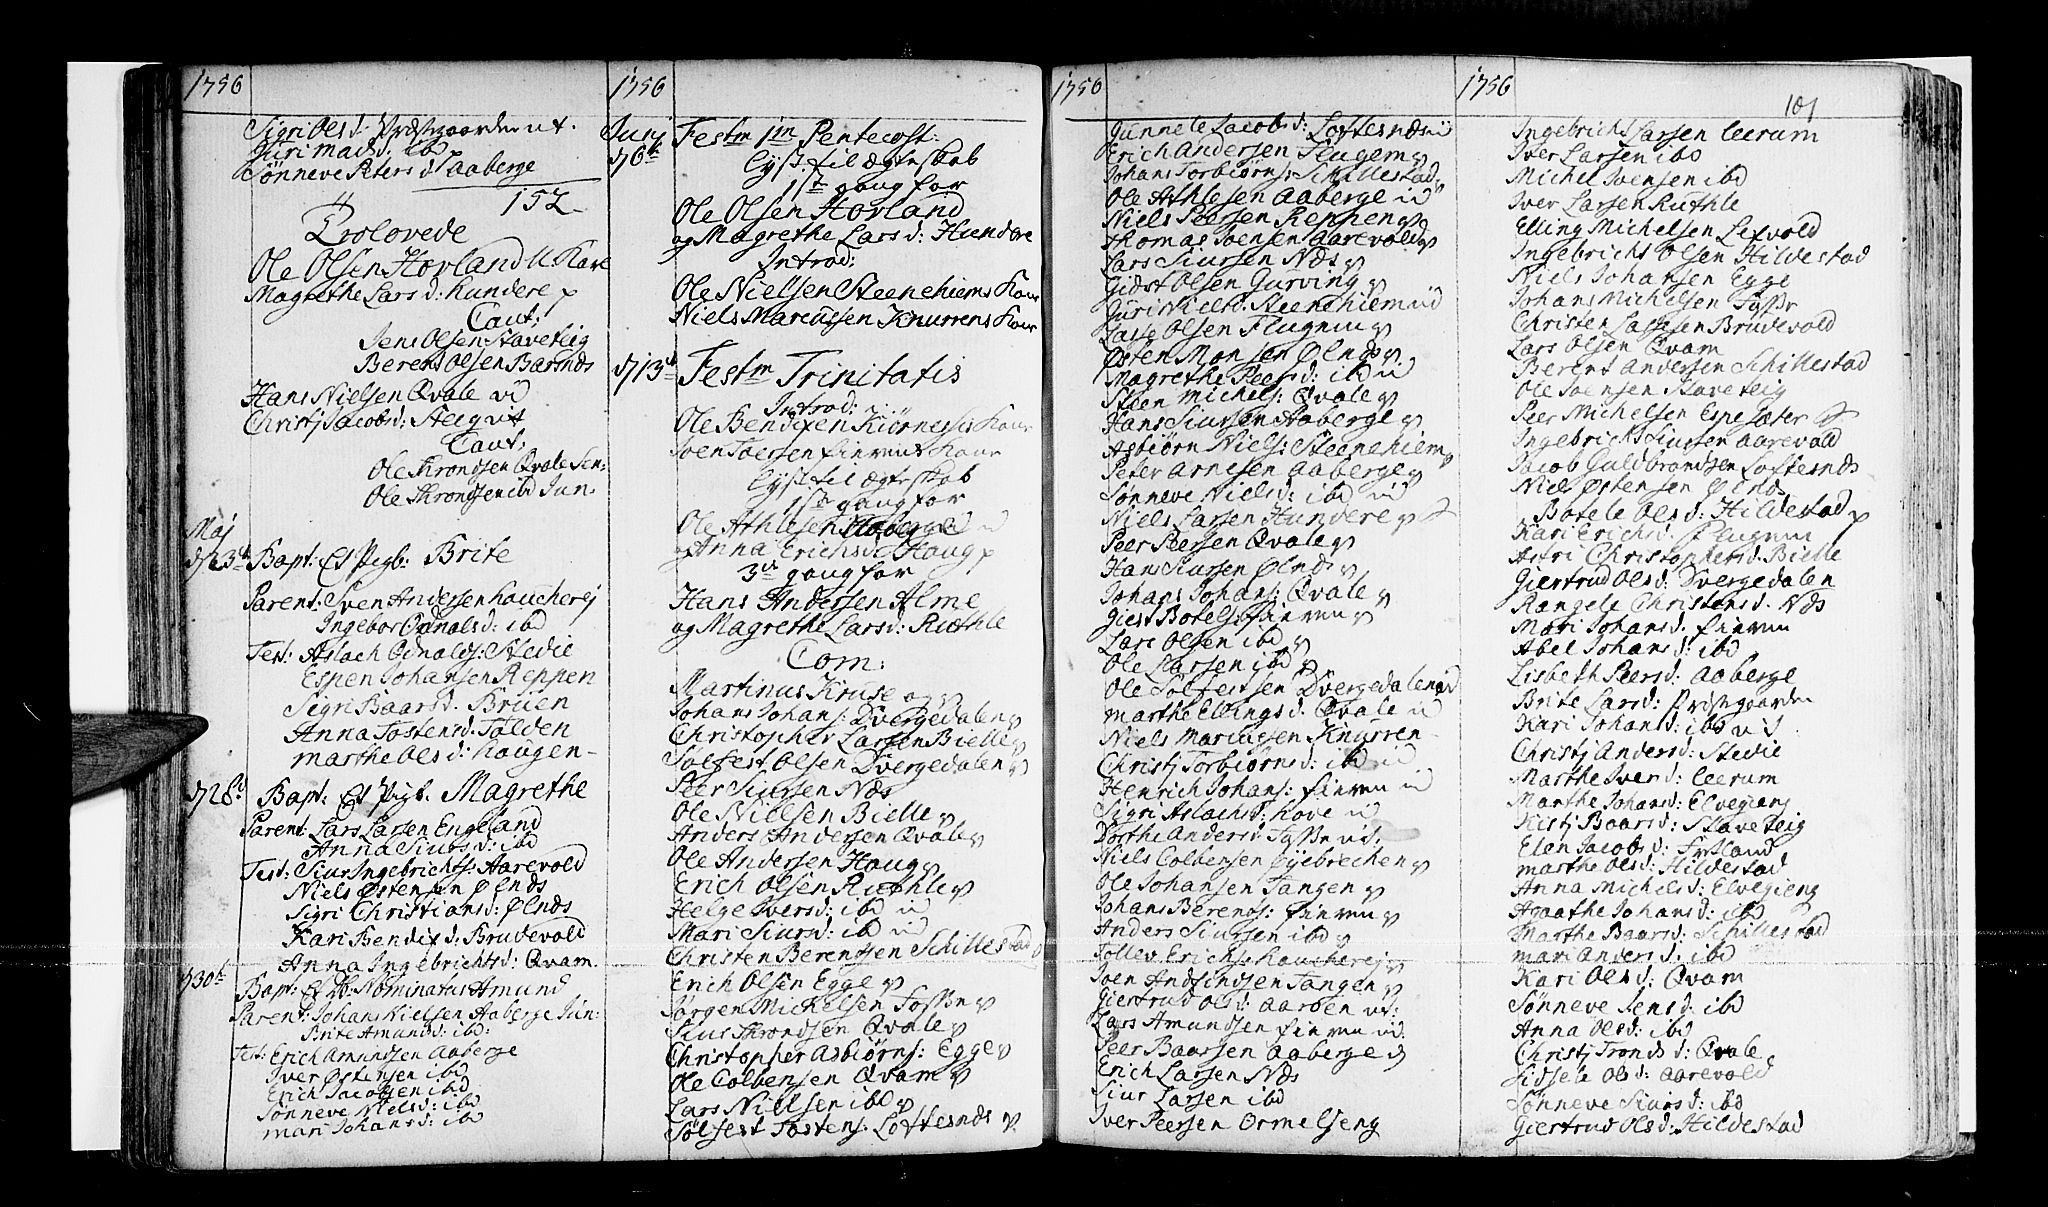 1756
Sigri Olsd: Præstgaarden ut.
Guri Madsd: ibd
Sønneve Peters d: Aaberge
152
Trolovede
Ole Olsen Hovland U: Kare
Magrethe Lars d: Hundere
Caut:
Jens Olsen Staveteig
Berent Olsen Barsnæs
Hans Nielsen Qvale
Christj Jacobs d: Steeg
Caut:
Ole Throndsen Qvale Sen:
Ole Throndsen ibd Jun.
Maj
d/23de Bapt: Et Pigb: Brite
Parent: Sven Andersen Loucherej
Ingebor Odnols d: ibd
Test: Aslach Odnolds: Stedie
Espen Johansen Reppen
Sigri Baars d: Bruen
Anna Tostens d: Tolden
Marthe Ols d: Hougen
d/28d Bapt: Et Pigb: Magrethe
Parent: Lars Larsen Engeland
Anna Siurs d: ibd
Test: Siur Ingebrichts: Aarevold
Niels Østensen Ølnæs
Sigri Christians d: Ølnæs
Kari Bendix d: Brudevold
Anna Ingebrichts d: Qvam
d/30te Bapt: Et Nominatus Amund
Parent: Johans Nielsen Aaberge Jun:
Brite Amunds d: ibd:
Test: Erich Amundsen Aaberge
Iver Østensen ibd
Erich Jacobsen ibd
Sønneve Niels d: ibd
Mari Johans d: ibd
1756
Junj
d/6te Festm 1m Pentecost:
Lyst til Ægteskab
1ste gang for
Ole Olsen Hovland
og Magrethe Lars d: Hundere
Introd:
Ole Nielsen Steenehiems Kone
Niels Marcussen Knurrens Kone
d/13de Festm Trinitatis
Introd:
Ole Bendixen Kiörnes's Kone
Joen Kone
Lyst til Ægteskab
1ste gang for
Ole Athlesen Aaberge
og Anna Erichs d: Houg
3die gang for
Hans Andersen Alme
og Magrethe Lars d: Ruthle
Com:
Martinus Kruse og
Johans Johans: Dvergedalen
Christopher Larsen Bielle
Solfest Olsen Dvergedalen
Peer Siursen Næs
Ole Nielsen Bielle
Anders Andersen Qvale
Ole Andersen Houg
Erich Olsen Ruthle
Helge Ivers d: ibd
Mari Siurs d: ibd
Christen Berentsen Schillestad
Erich Olsen Egge
Jørgen Michelsen Fosse
Siur Throndsen Qvale
Christopher Asbiørns: Egge
Ole Colbensen Qvam
Lars Nielsen ibd
Solfest Tostens: Loftesnæs
1756
Gunnele Jacobs d: Loftesnæs
Erich Andersen Flugem
Johans Torbiørns: Schillestad
Ole Athlesen Aaberge
Niels Peersen Reppen
Thomas Joensen Aarevold
Lars Siursen Næs
Gidst Olsen Gurving
Guri Niels d: Steenehiem
Lasse Olsen Flugem
Østen Monsen Ølnæs
Magrethe Peers d: ibd
Steen Michels: Qvale
Hans Siursen Aaberge
Asbiørn Niels: Steenehiem
Peter Arnesen Aaberge
Sønneve Niels d: ibd
Niels Larsen Hundere
Peer Peersen Qvale
Hans Siursen Ølnæs
Johans Johans: Qvale
Giest Botels:
Lars Olsen ibd
Ole Larsen ibd
Ole Solfestsen Dvergedalen
Marthe Ellings d: Qvale
Niels Marcusen Knurren
Christj Torbiørns d: ibd
Henrich Johans:
Sigri Aslachs d: Hove
Dorthe Anders d: Fosse
Niels Colbensen Øyebrechen
Ole Johansen Tangen
Johans Berends:
Anders Siursen ibd
Tollev Erichs: Loucherej
Joen Andfindsen Tangen
Giertrud Ols d: Aarøen
Lars Amundsen
Peer Baarsen Aaberge
Erich Larsen Næs
Siur Larsen ibd
Iver Peersen Ormelseng
1756
101
Ingebricht Larsen Leerum
Iver Larsen ibd
Michel Svensen ibd
Iver Larsen Ruthle
Elling Michelsen Lexvold
Ingebricht Olsen Hildestad
Niels Johansen Egge
Johans Michelsen Fosse
Christen Lassesen Brudevold
Lars Olsen Qvam
Berent Andersen Schillestad
Ole Svensen Staveteig
Peer Michelsen Espesæter
Ingebricht Siursen Aarevold
Jacob Guldbrandsen Loftesnæs
Niels Østensen Ølnæs
Botele Ols d: Hildestad
Kari Erichs d: Flugem
Astri Christophers d: Bielle
Giertrud Ols d: Dvergedalen
Rangele Christens d: Næs
Mari Johans d:
Abel Johans d: ibd
Lisbeth Peers d: Aaberge
Brite Lars d: Præstgaarden
Kari Johans d: ibd
Christj Anders d: Stedie
Marthe Iver d: Leerum
Marthe Johans d: Elvegieng
Kistj Baars d: Staveteig
Elen Jacobs d:
Marthe Ols d: Hildestad
Anna Michels d: Elvegieng
Agaathe Johans d: ibd
Marthe Baars d: Schillestad
Mari Anders d: ibd
Kari Ols d: Qvam
Sønneve Jens d: ibd
Anna Ols d: ibd
Christj Tronds d: Qvale
Sidsele Ols d: Aarevold
Sønneve Siurs d: ibd
Giertrud Ols d: Hildestad